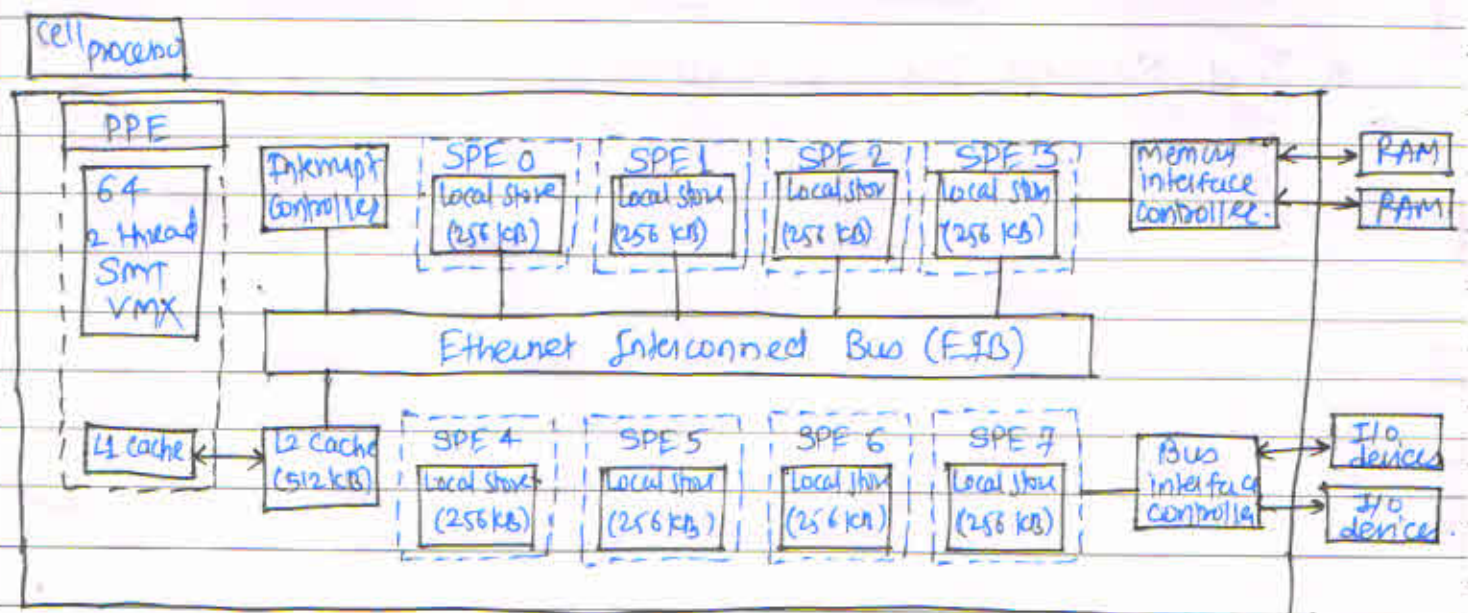 Cell processor
PPE
64
2 thread
SMT
VMX
L1 Cache
Interrupt
Controller
L2 Cache
(512 KB)
SPE 0
Local store
(256 KB)
SPE 1
Local store
(256 KB)
SPE 2
Local stor
(256 KB)
SPE 3
Local stor
(256 KB)
Memory
interface
controller.
RAM
RAM
Ethernet Interconned Bus (EIB)
SPE 4
Local store
(256 KB)
SPE 5
Local store
(256 KB)
SPE 6
Local store
(256 KB)
SPE 7
Local store
(256 KB)
Bus
interface
controller
I/O
devices
I/O
devices.